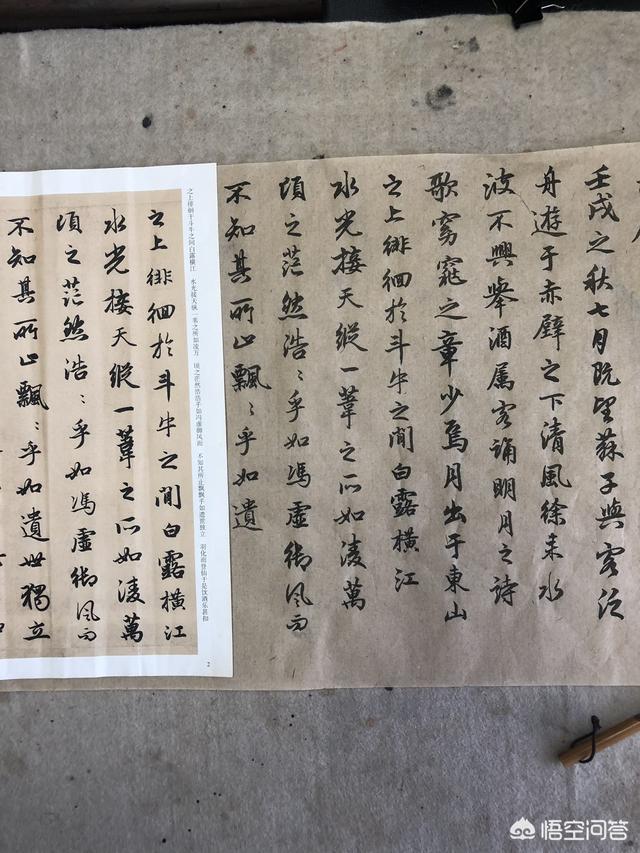 壬戌之秋七月既望蘇子與客泛
舟遊于赤壁之下清風徐来水
波不興舉酒属客誦明月之詩
歌窈窕之章少焉月出于東山
之上徘徊於斗牛之間白露橫江
水光接天縱一葦之所如淩萬
頃之茫然浩〻乎如馮虛御風而
不知其所止飄〻乎如遺
之上徘徊于斗牛之间白露横江 水光接天纵一苇之所如凌万 顷之茫然浩浩乎如冯虚御风而 不知其所止飘飘乎如遗世独立 羽化而登仙于是饮酒乐甚扣
2
之上徘徊於斗牛之間白露橫江
水光接天縱一葦之所如淩萬
頃之茫然浩〻乎如馮虛御風而
不知其所止飄〻乎如遺世獨立
悟空问答